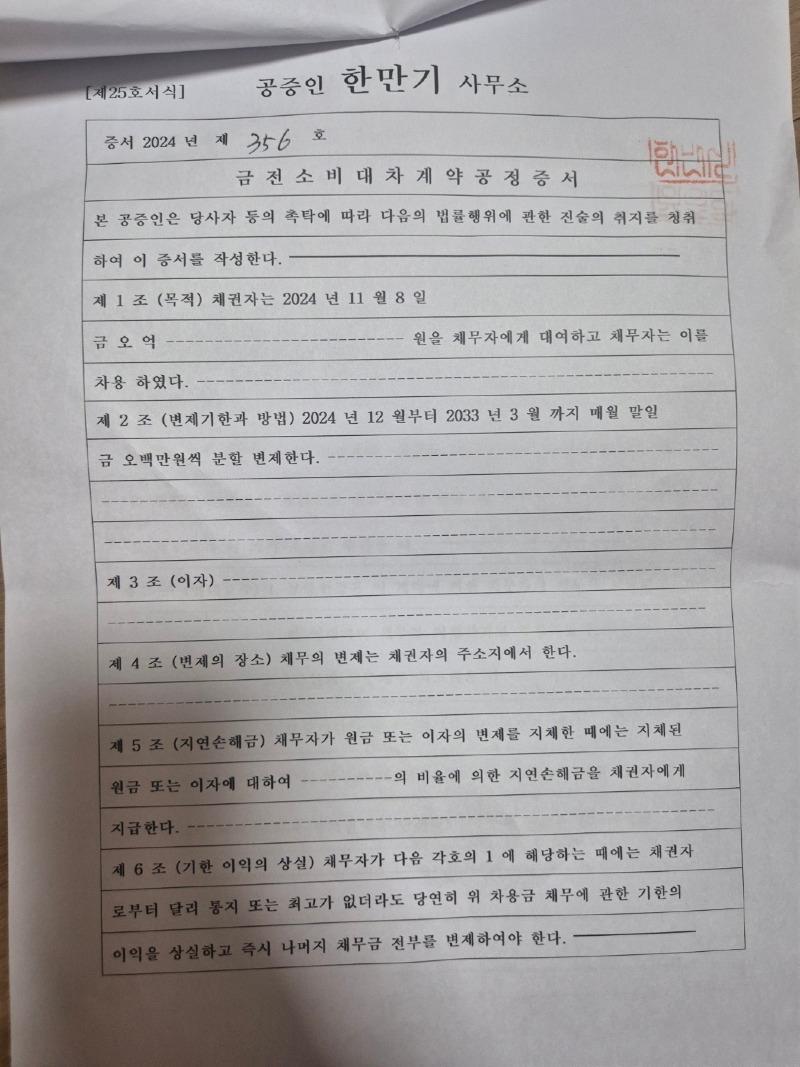 [제25호서식] 공증인 한만기 사무소
증서 2024 년 제 356 호
금전소비대차계약공정증서
본 공증인은 당사자 등의 촉탁에 따라 다음의 법률행위에 관한 진술의 취지를 청취
하여 이 증서를 작성한다.
제 1 조 (목적) 채권자는 2024 년 11 월 8 일
금 오 억 ------------------------- 원을 채무자에게 대여하고 채무자는 이를
차용 하였다. ------------------------------------------------------
제 2 조 (변제기한과 방법) 2024 년 12 월부터 2033 년 3 월 까지 매월 말일
금 오백만원씩 분할 변제한다. ----------------------------------------
제 3 조 (이자) --------------------------------------------------
제 4 조 (변제의 장소) 채무의 변제는 채권자의 주소지에서 한다.
제 5 조 (지연손해금) 채무자가 원금 또는 이자의 변제를 지체한 때에는 지체된
원금 또는 이자에 대하여 ----------의 비율에 의한 지연손해금을 채권자에게
지급한다. ------------------------------------------------------
제 6 조 (기한 이익의 상실) 채무자가 다음 각호의 1 에 해당하는 때에는 채권자
로부터 달리 통지 또는 최고가 없더라도 당연히 위 차용금 채무에 관한 기한의
이익을 상실하고 즉시 나머지 채무금 전부를 변제하여야 한다.